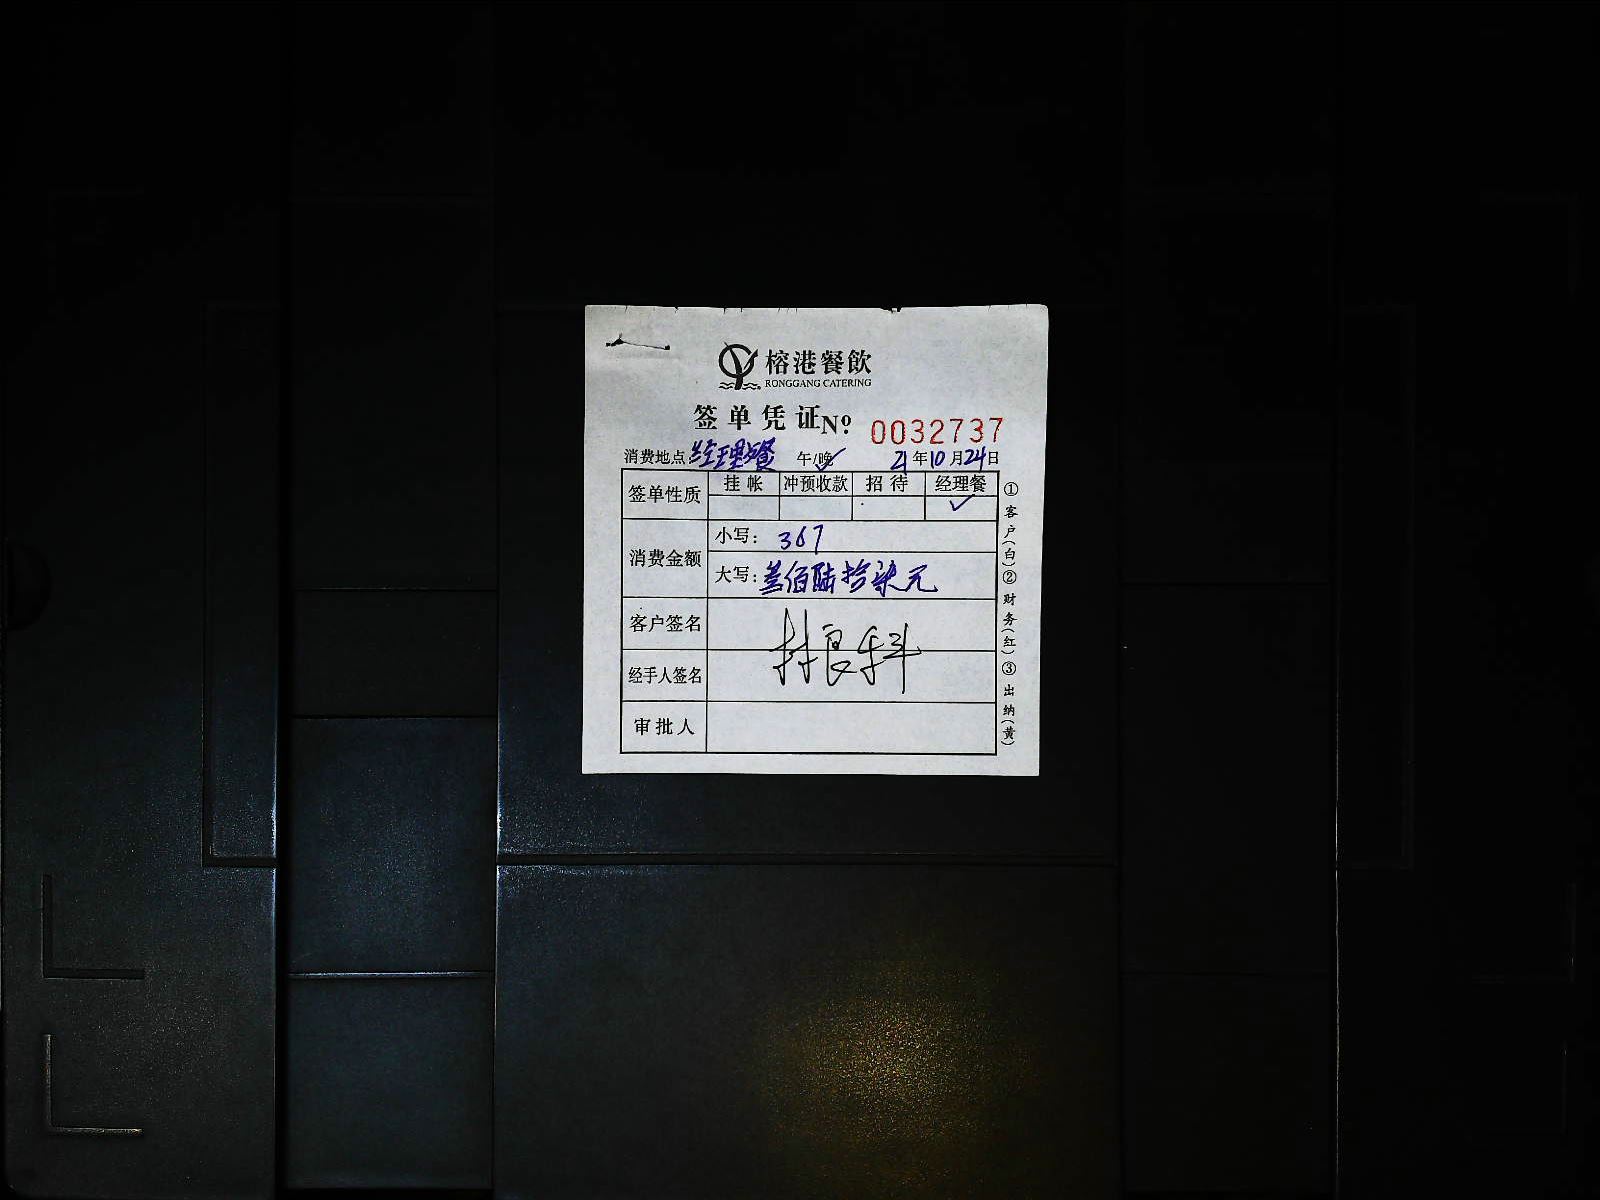 榕港餐飲
RONGGANG CATERING
签单凭证 Nº 0032737
消费地点:经理餐 午/晚✓ 21年10月24日
签单性质 挂帐 冲预收款 招待 经理餐
✓
消费金额 小写: 367
大写: 叁佰陆拾柒元
客户签名
林良科
经手人签名
审批人
①客户(白)②财务(红)③出纳(黄)